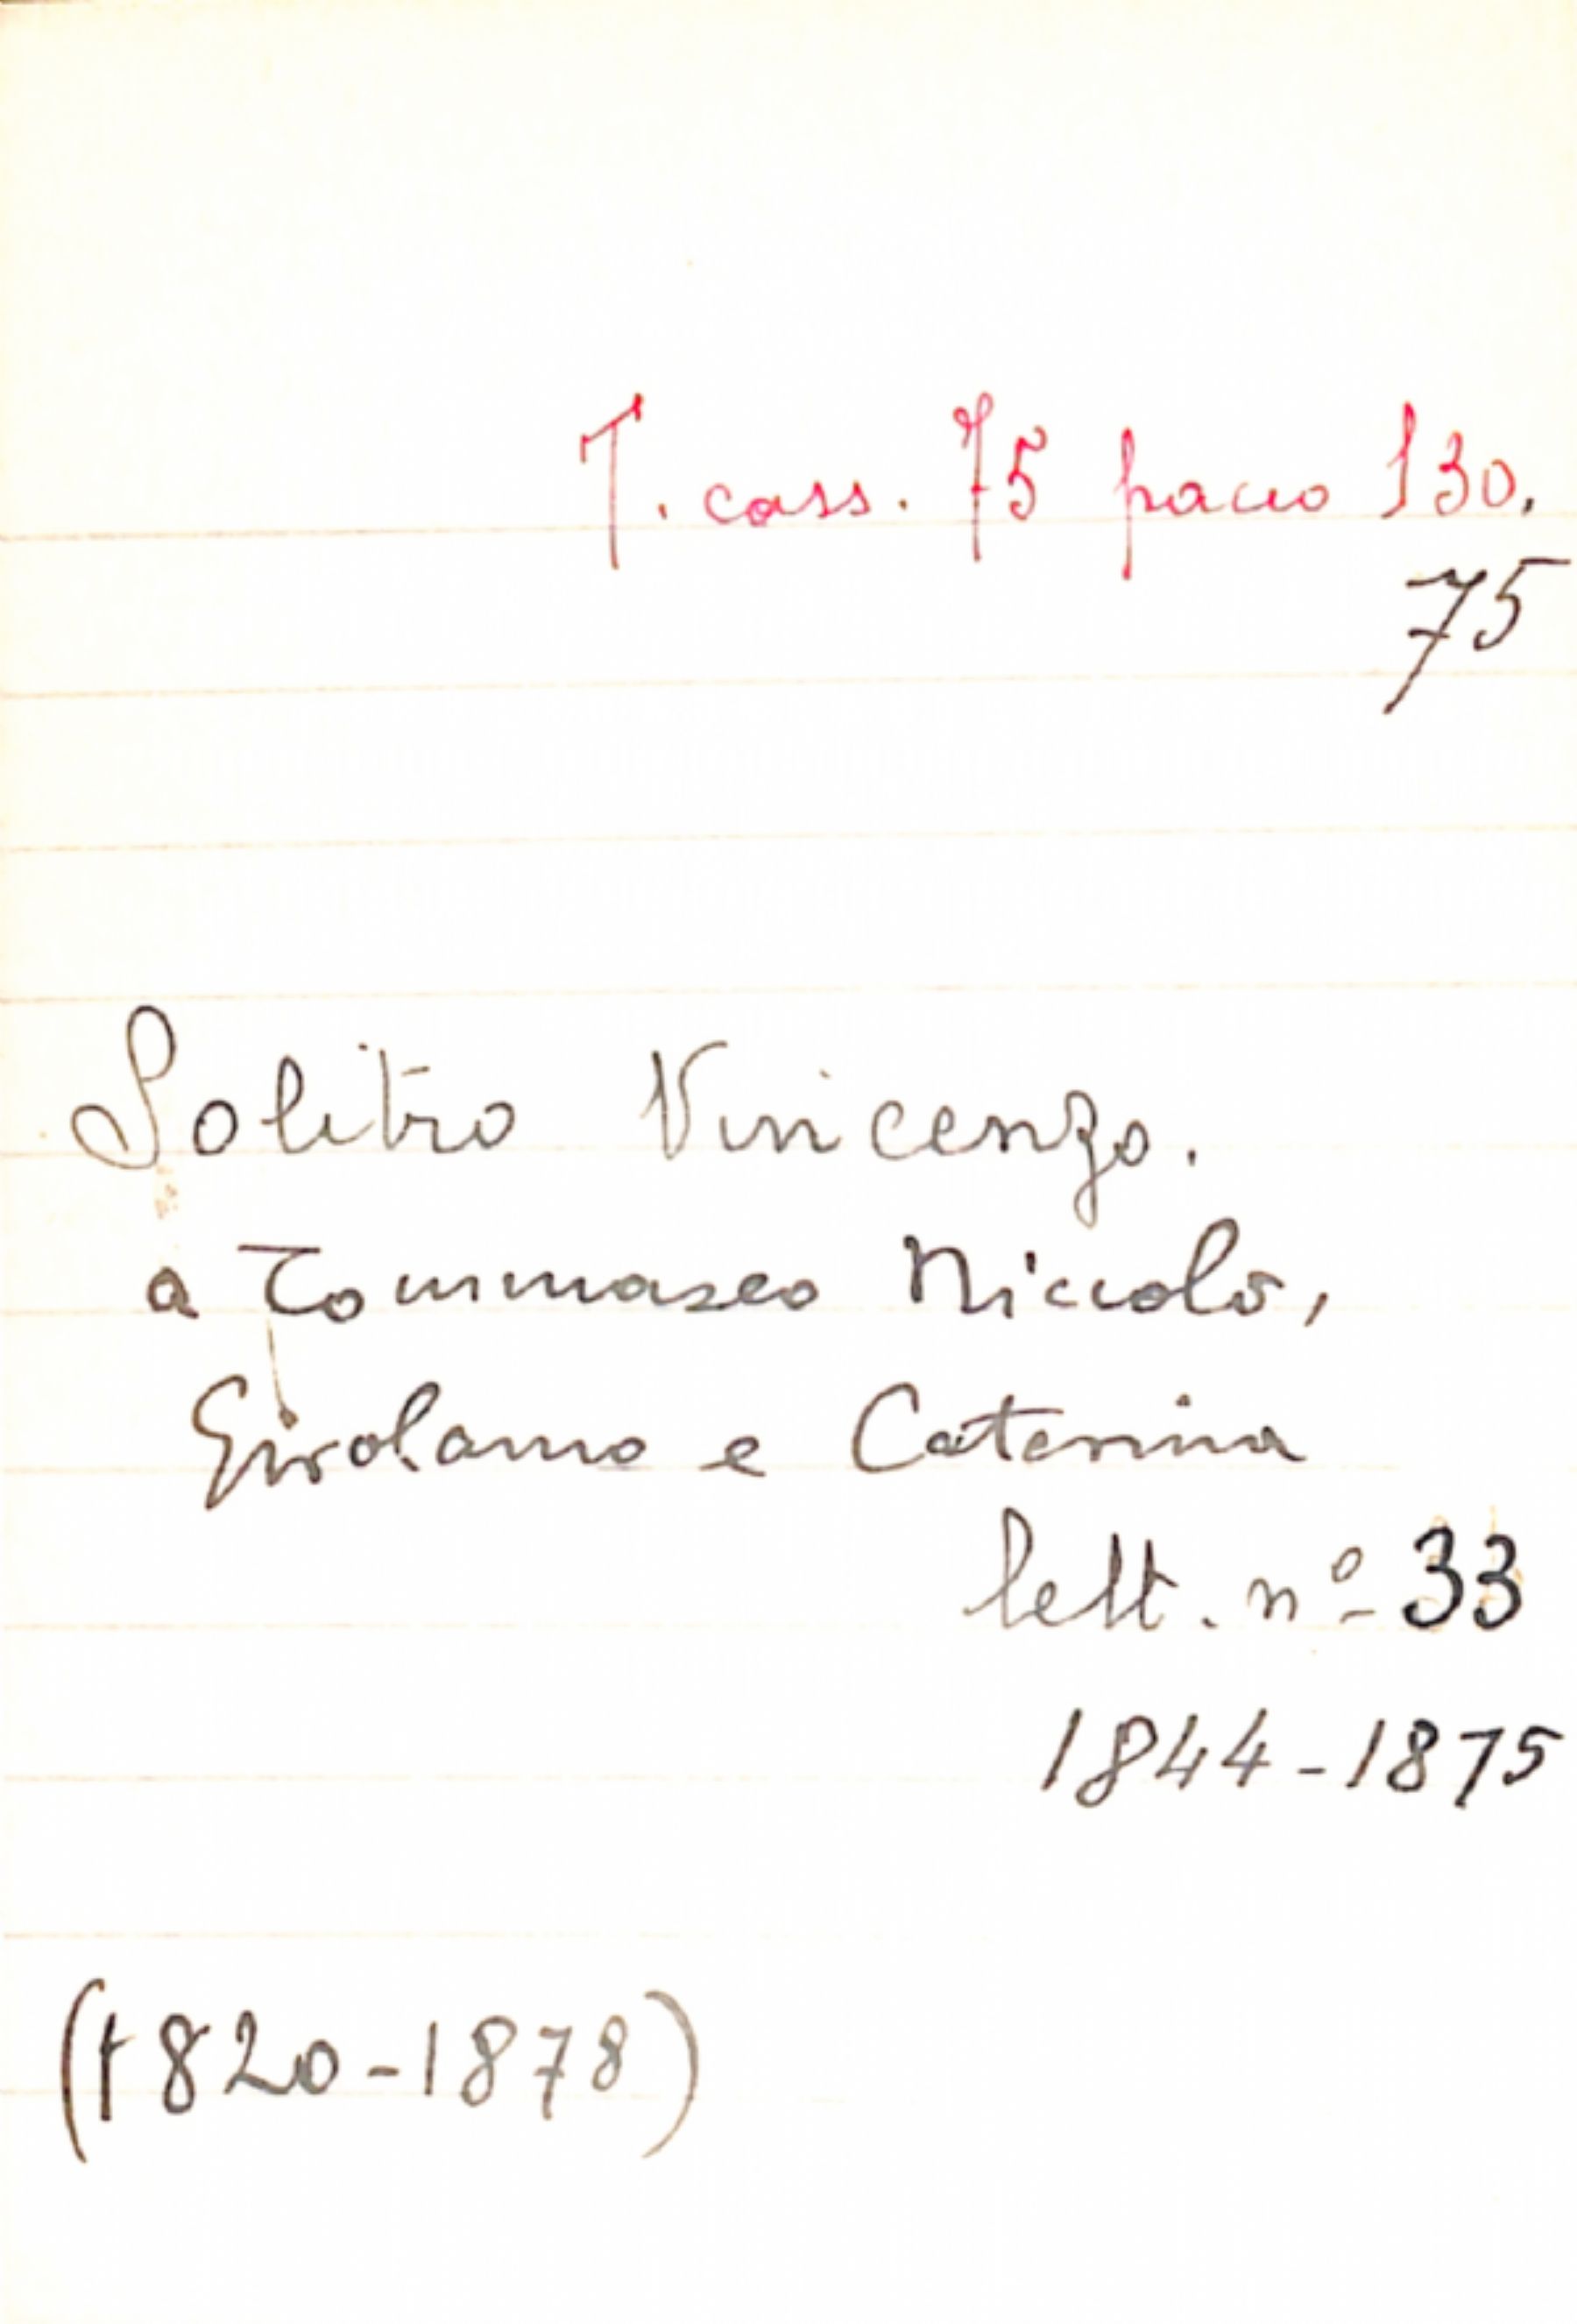 T. cass. 75 pacco 130.
75
Solitro Vincenzo.
a Tommaseo Niccolò,
Girolamo e Caterina
lett. nº 33
1844-1875
(1820-1878)